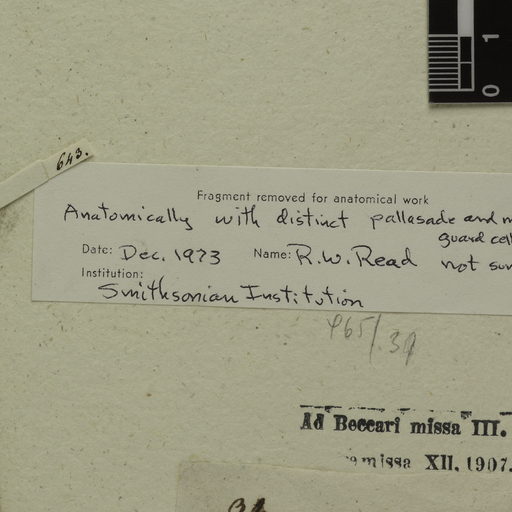 0 1
643.
Fragment removed for anatomical work
Anatomically with distinct pallasade and
guard cell
Date: Dec. 1973 Name: R.W. Read not
Institution:
Smithsonian Institution
Ad Beccari missa III.
missa XII, 1907.